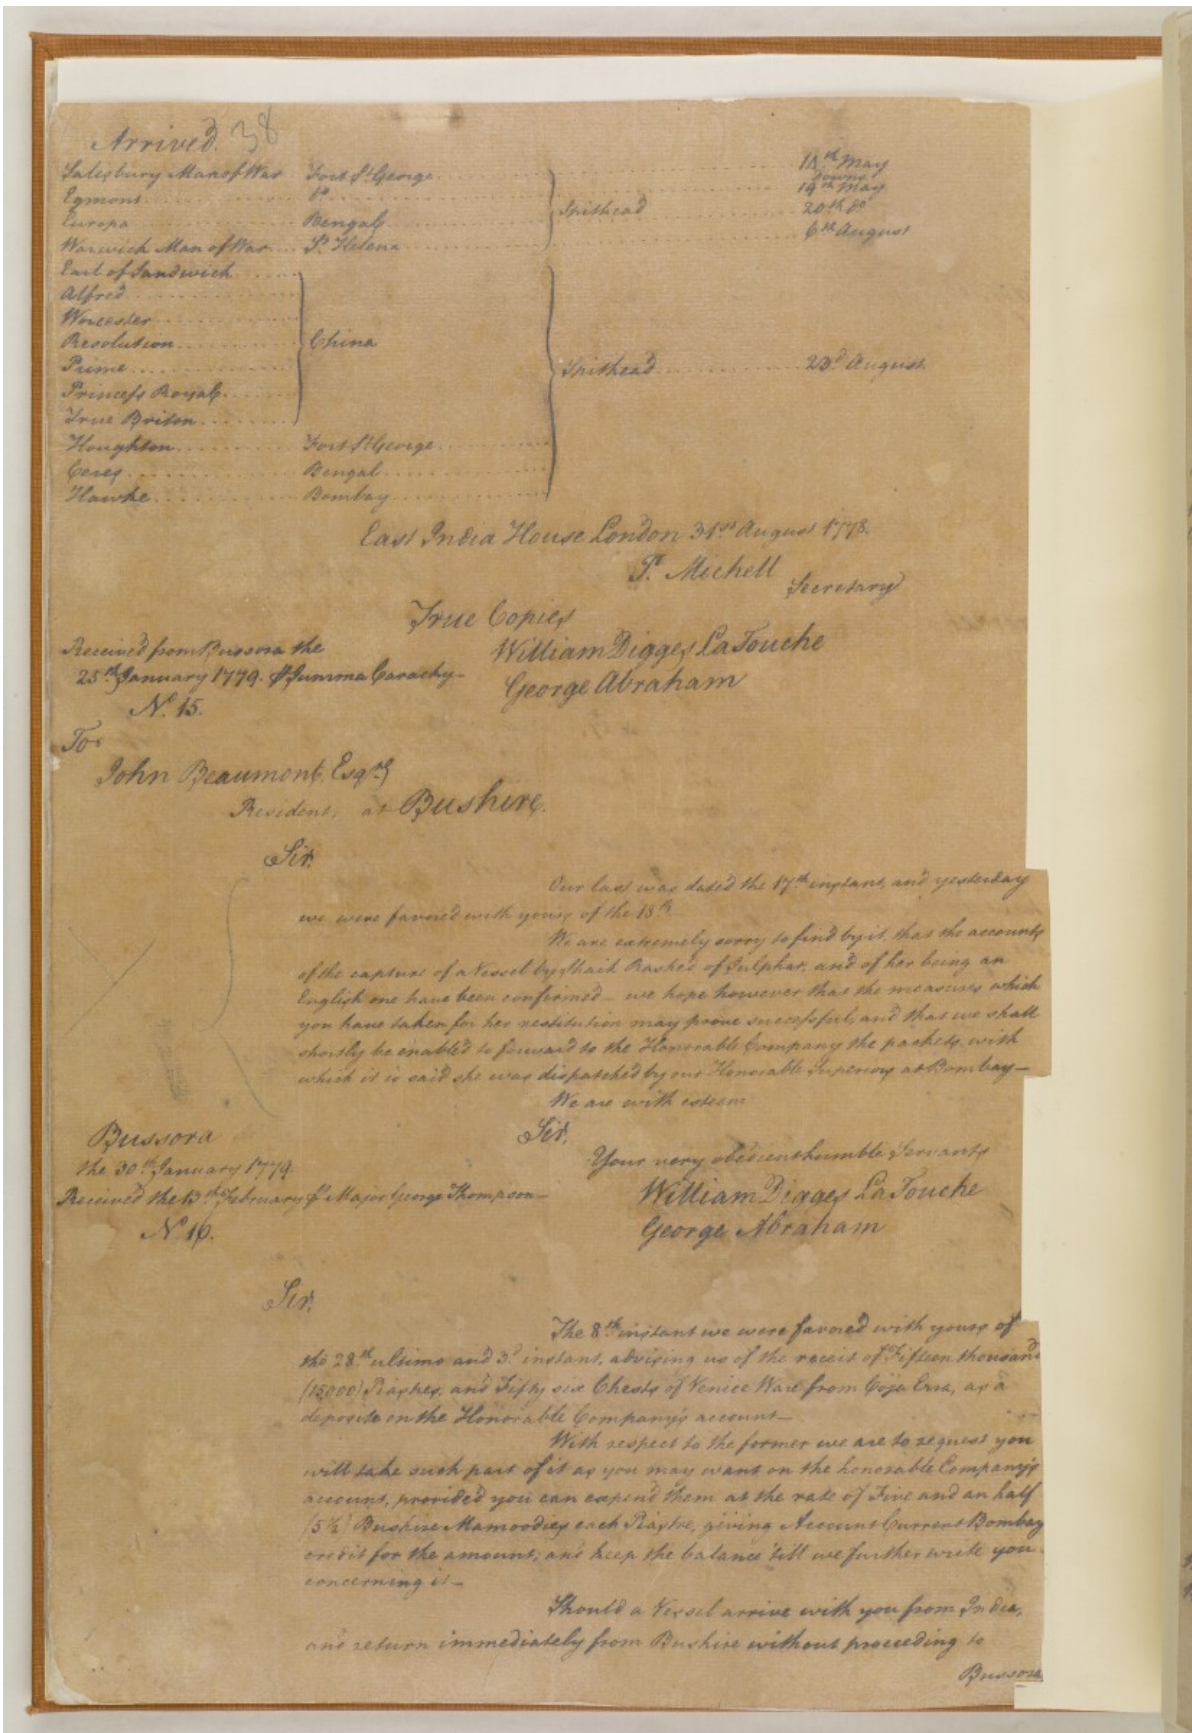 Arrived. 38
Salisbury Man of War Fort St. George 18th May
Downs
Egmont Do 19th May
Europa Bengal Spithead 20th Do
Warwick Man of War St. Helena 6th August
Earl of Sandwich
Alfred
Worcester
Resolution China
Prime Spithead 23d August.
Princess Royal
True Briton
Houghton Fort St George
Ceres Bengal
Hawke Bombay
East India House London 31st August 1778.
P. Michell
Secretary
True Copies
Received from Bussora the William Digges LaTouche
25th January 1779. Summa Carachy— George Abraham
No. 15.
To
John Beaumont, Esqre
Resident, at Bushire.
Sir.
Our last was dated the 17th instant, and yesterday
we were favored with yours of the 18th
We are extremely sorry to find by it, that the accounts
of the capture of a Vessel by Shaik Rashed of Julphar, and of her being an
English one have been confirmed — we hope however that the measures which
you have taken for her restitution may prove successful, and that we shall
shortly be enabled to forward to the Honorable Company the packets, with
which it is said she was dispatched by our Honorable Superiors at Bombay—
We are with esteem
Bussora Sir,
the 30th January 1779. Your very obedient humble Servants
Received the 13th February Pr Major George Thompson— William Digges LaTouche
No 16. George Abraham
Sir,
The 8th instant we were favored with yours of
the 28th ultimo and 3d instant, advising us of the receit of Fifteen thousand
(15000) Piastres, and Fifty six Chests of Venice Ware from Coja Essa, as a
deposite on the Honorable Company's account—
With respect to the former we are to request you
will take such part of it as you may want on the honorable Company's
account, provided you can expend them at the rate of Five and an half
(5 1/2) Bushire Mamoodies each Piastre, giving Account Current Bombay
credit for the amount; and keep the balance 'till we further write you
concerning it—
Should a Vessel arrive with you from India,
and return immediately from Bushire without proceeding to
Bussora